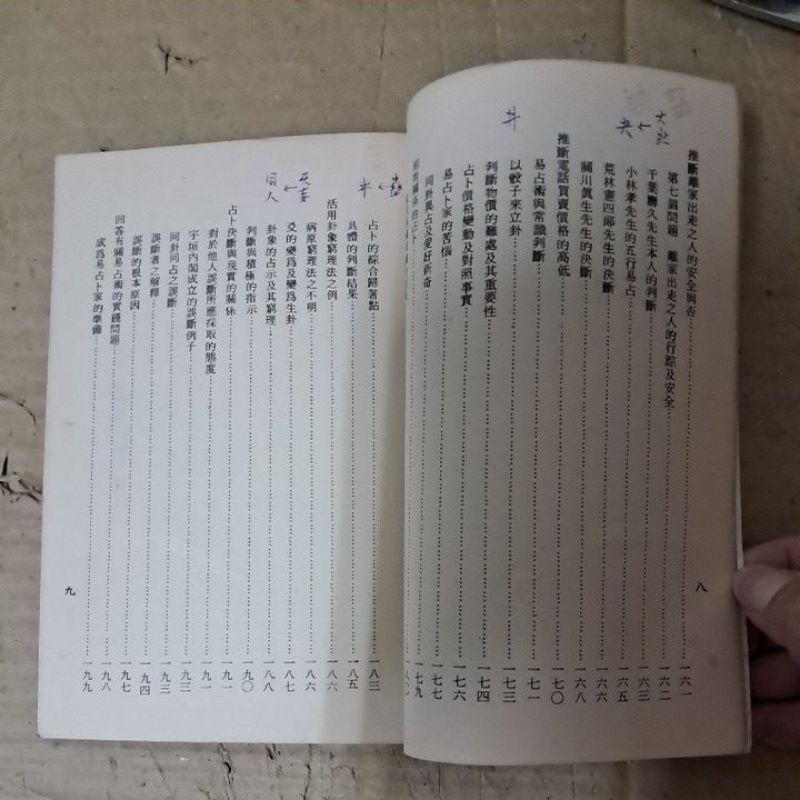 大壯
夬←
井
推斷離家出走之人的安全與否……一六一
第七個問題 離家出走之人的行踪及安全……一六二
千葉壽久先生本人的判斷……一六三
小林孝先生的五行易占……一六五
荒林憲四郎先生的決斷……一六六
關川眞生先生的決斷……一六八
推斷電話買賣價格的高低……一七〇
易占術與常識判斷……一七一
以骰子來立卦……一七三
判斷物價的難處及其重要性……一七四
占卜價格變動及對照事實……一七六
易占卜家的苦惱……一七七
同卦異占及愛好新奇……一七九
八
蠱
井←
无妄
同人←
占卜的綜合歸著點……一八三
具體的判斷結果……一八五
活用卦象窮理法之例……一八六
病原窮理法之不明……一八六
爻的變爲及變爲生卦……一八七
卦象的占示及其窮理……一八八
判斷與積極的指示……一九〇
占卜決斷與現實的關係……一九一
對於他人誤斷所應採取的態度……一九一
宇垣內閣成立的誤斷例子……一九三
同卦同占之誤斷……一九三
誤斷者之解釋……一九四
誤斷的根本原因……一九七
回答有關易占術的實踐問題……一九八
成爲易占卜家的準備……一九九
九